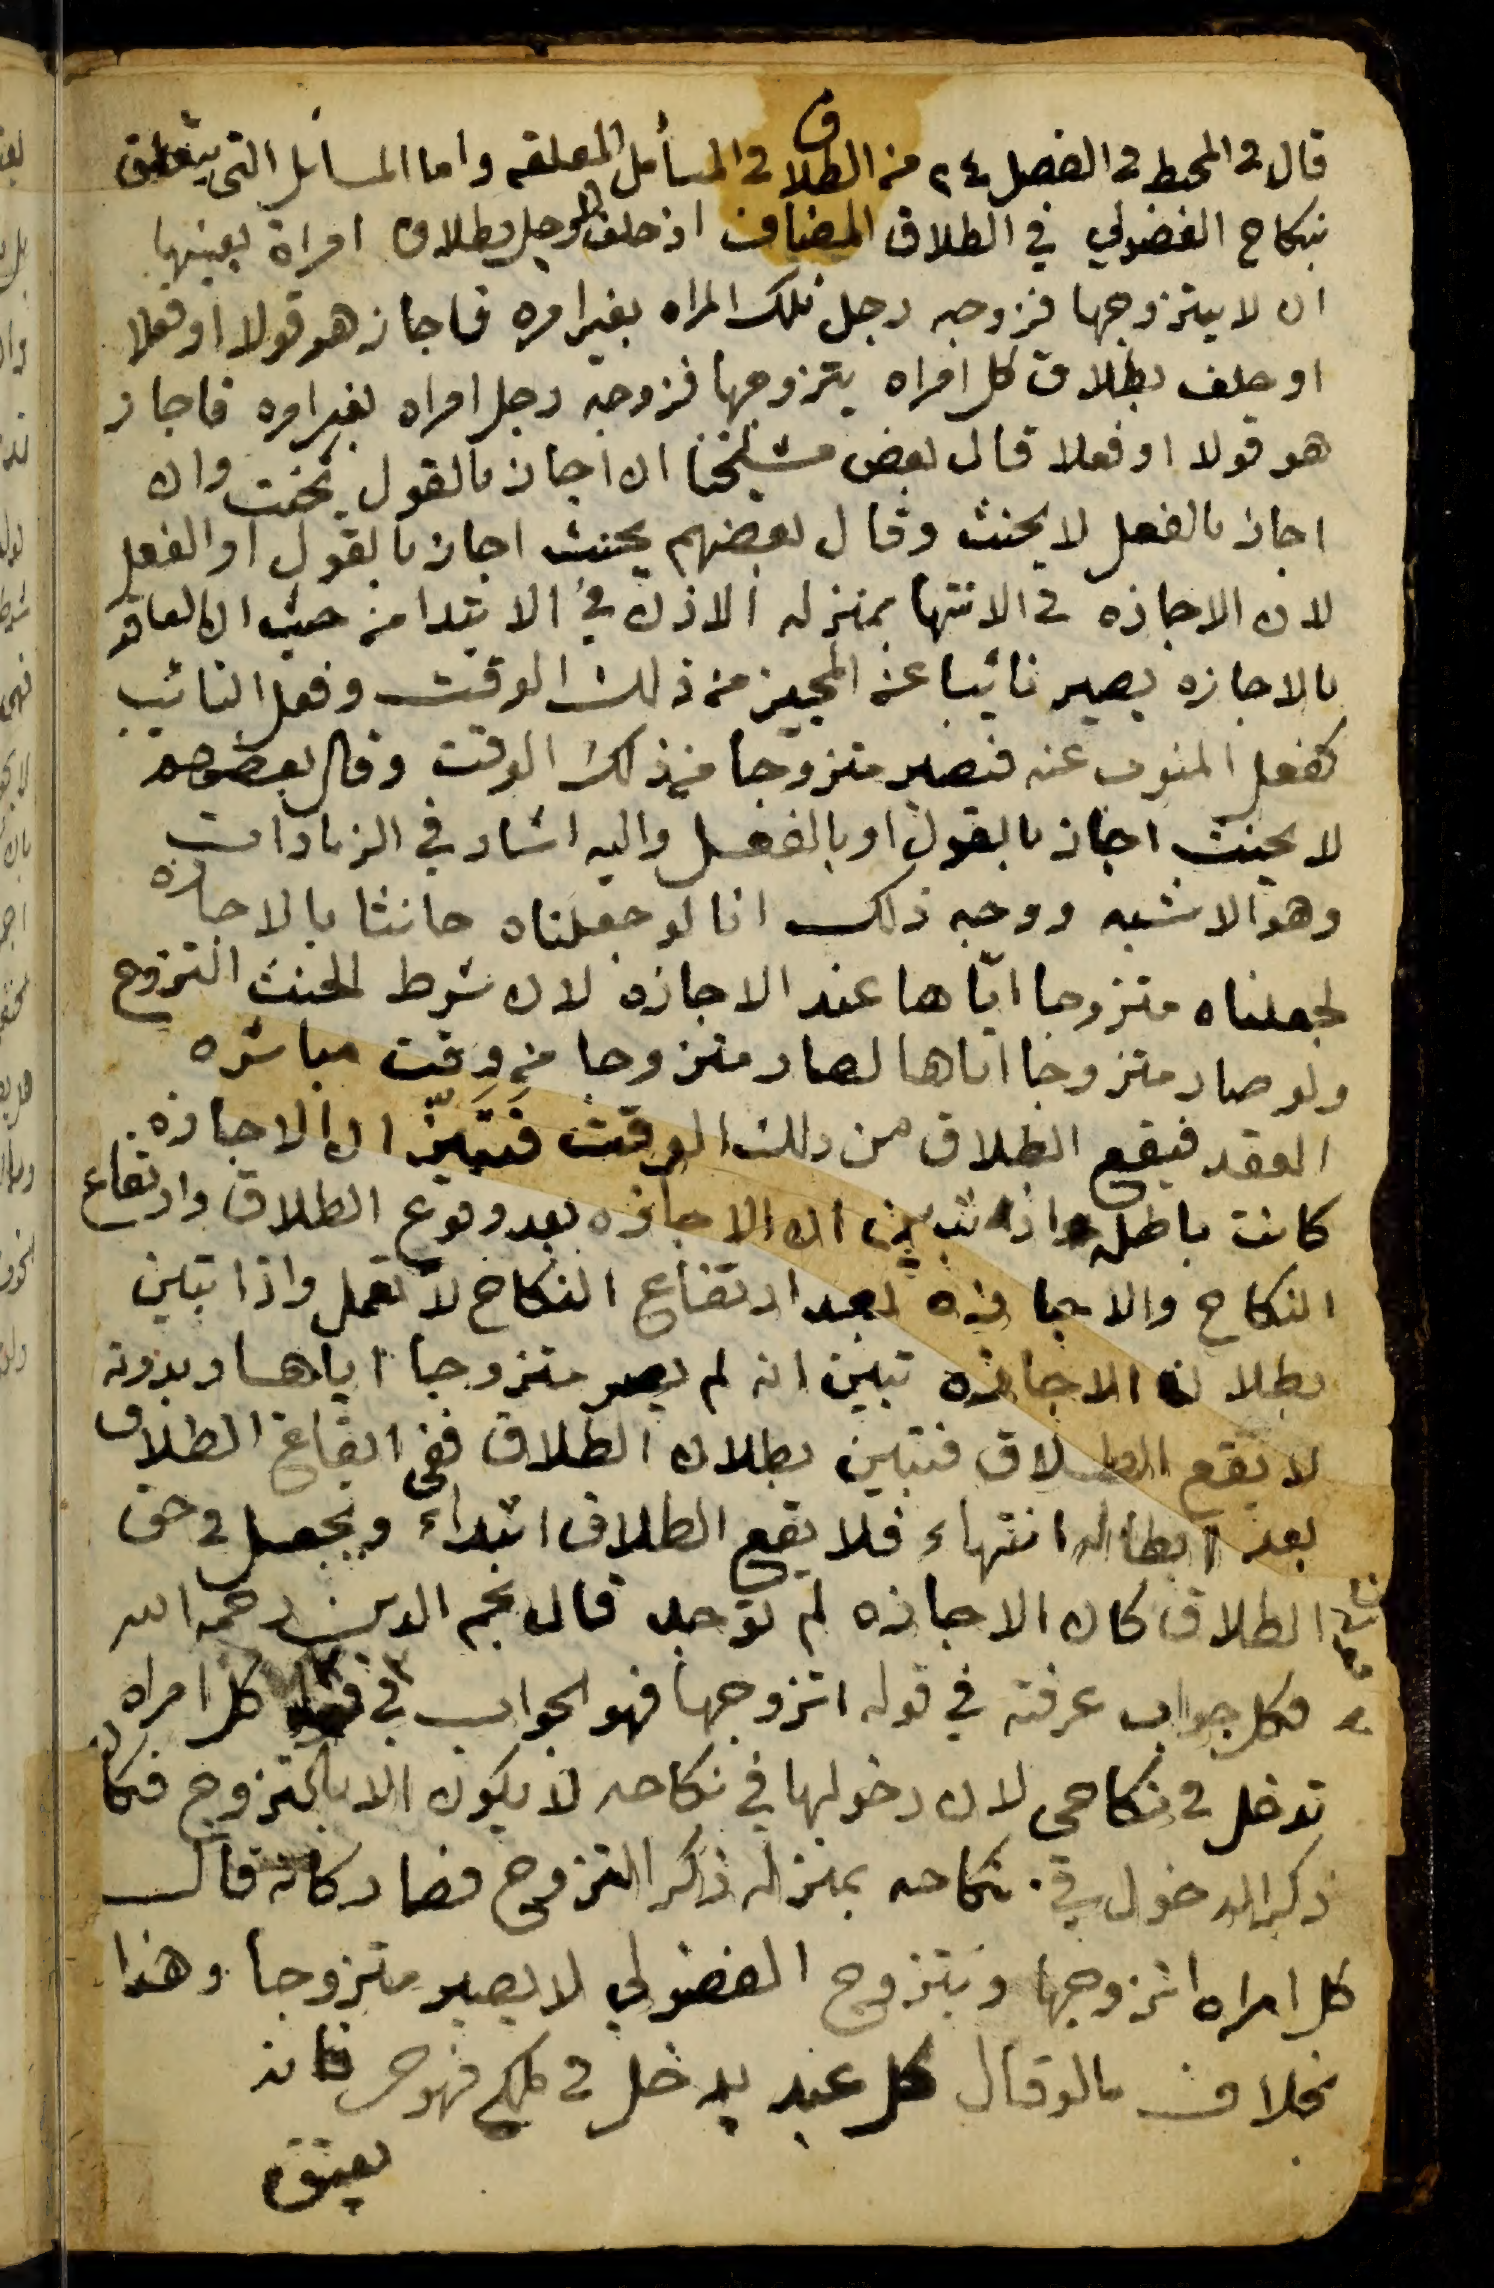 قال في المحيط في الفصل ٢٤ من الطلاق في المسائل المعلقه واما المسائل التي يتعلق
بنكاح الفضولي في الطلاق المضاف اذ حلف الرجل بطلاق امراة بعينها
ان لا يتزوجها فزوجه رجل تلك المراه بغير امره فاجاز هو قولا او فعلا
او حلف بطلاق كل امراه يتزوجها فزوجه رجل امراه بغير امره فاجاز
هو قولا او فعلا قال بعض مشيخنا ان اجاز بالقول يحنث وان
اجاز بالفعل لا يحنث وقال بعضهم يحنث اجاز بالقول او الفعل
لان الاجازه في الانتها بمنزله الاذن في الابتدا من حيث ان العاقد
بالاجازه يصير نائبا عن المجيز من ذلك الوقت وفعل النائب
كفعل المنوب عنه فيصير متزوجا من ذلك الوقت وقال بعضهم
لا يحنث اجاز بالقول او بالفعل واليه اشار في الزيادات
وهو الاشبه ووجه ذلك انا لو جعلناه حانثا بالاجازه
لجعلناه متزوجا اياها عند الاجازه لان شرط الحنث التزوج
ولو صار متزوجا اياها لصار متزوجا من وقت مباشره
العقد فيقع الطلاق من ذلك الوقت فتبين ان الاجازه
كانت باطله واذا تبين ان الاجازه بعد وقوع الطلاق وارتفاع
النكاح والاجازه بعد ارتفاع النكاح لا تعمل واذا تبين
بطلان الاجازه تبين انه لم يصر متزوجا اياها وبدونه
لا يقع الطلاق فتبين بطلان الطلاق ففي ايقاع الطلاق
بعد ابطاله انتهاء فلا يقع الطلاق ابتداء ويجعل في حق
الطلاق كان الاجازه لم توجد قال نجم الدين رحمه الله
وكل جواب عرفته في قوله اتزوجها فهو الجواب في كل امراه
تدخل في نكاحي لان دخولها في نكاحه لا يكون الا بالتزوج فكان
ذكر الدخول في نكاحه بمنزله ذكر التزوج فصار كانه قال
كل امراه اتزوجها وبتزوج الفضولي لا يصير متزوجا وهذا
بخلاف ما لو قال كل عبد يدخل في ملكي فهو حر فانه
يعتق